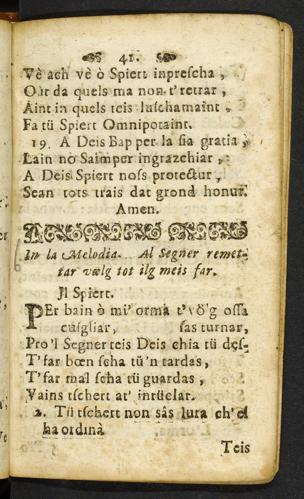 41.
Vè ach vè ò Spiert inprescha,
Our da quels ma non t'retrar,
Aint in quels teis luschamaint,
Fa tü Spiert Omnipotaint.
19. A Deis Bap per la sia gratia,
Lain no Saimper ingrazchiar,
A Deis Spiert noss protectur,
Sean tots trais dat grond honur.
Amen.
In la Melodia. Al Segner remet-
tar vœlg tot ilg meis far.
Jl Spiert.
PEr bain ò mi' orma t'vö'g ossa
cusgliar, sas turnar,
Pro'l Segner teis Deis chia tü des-
T'far bœn scha tü'n tardas,
T'far mal scha tü guardas,
Vains tschert at' inrüclar.
2. Tü tschert non sâs lura ch'el
ha ordinà
Teis